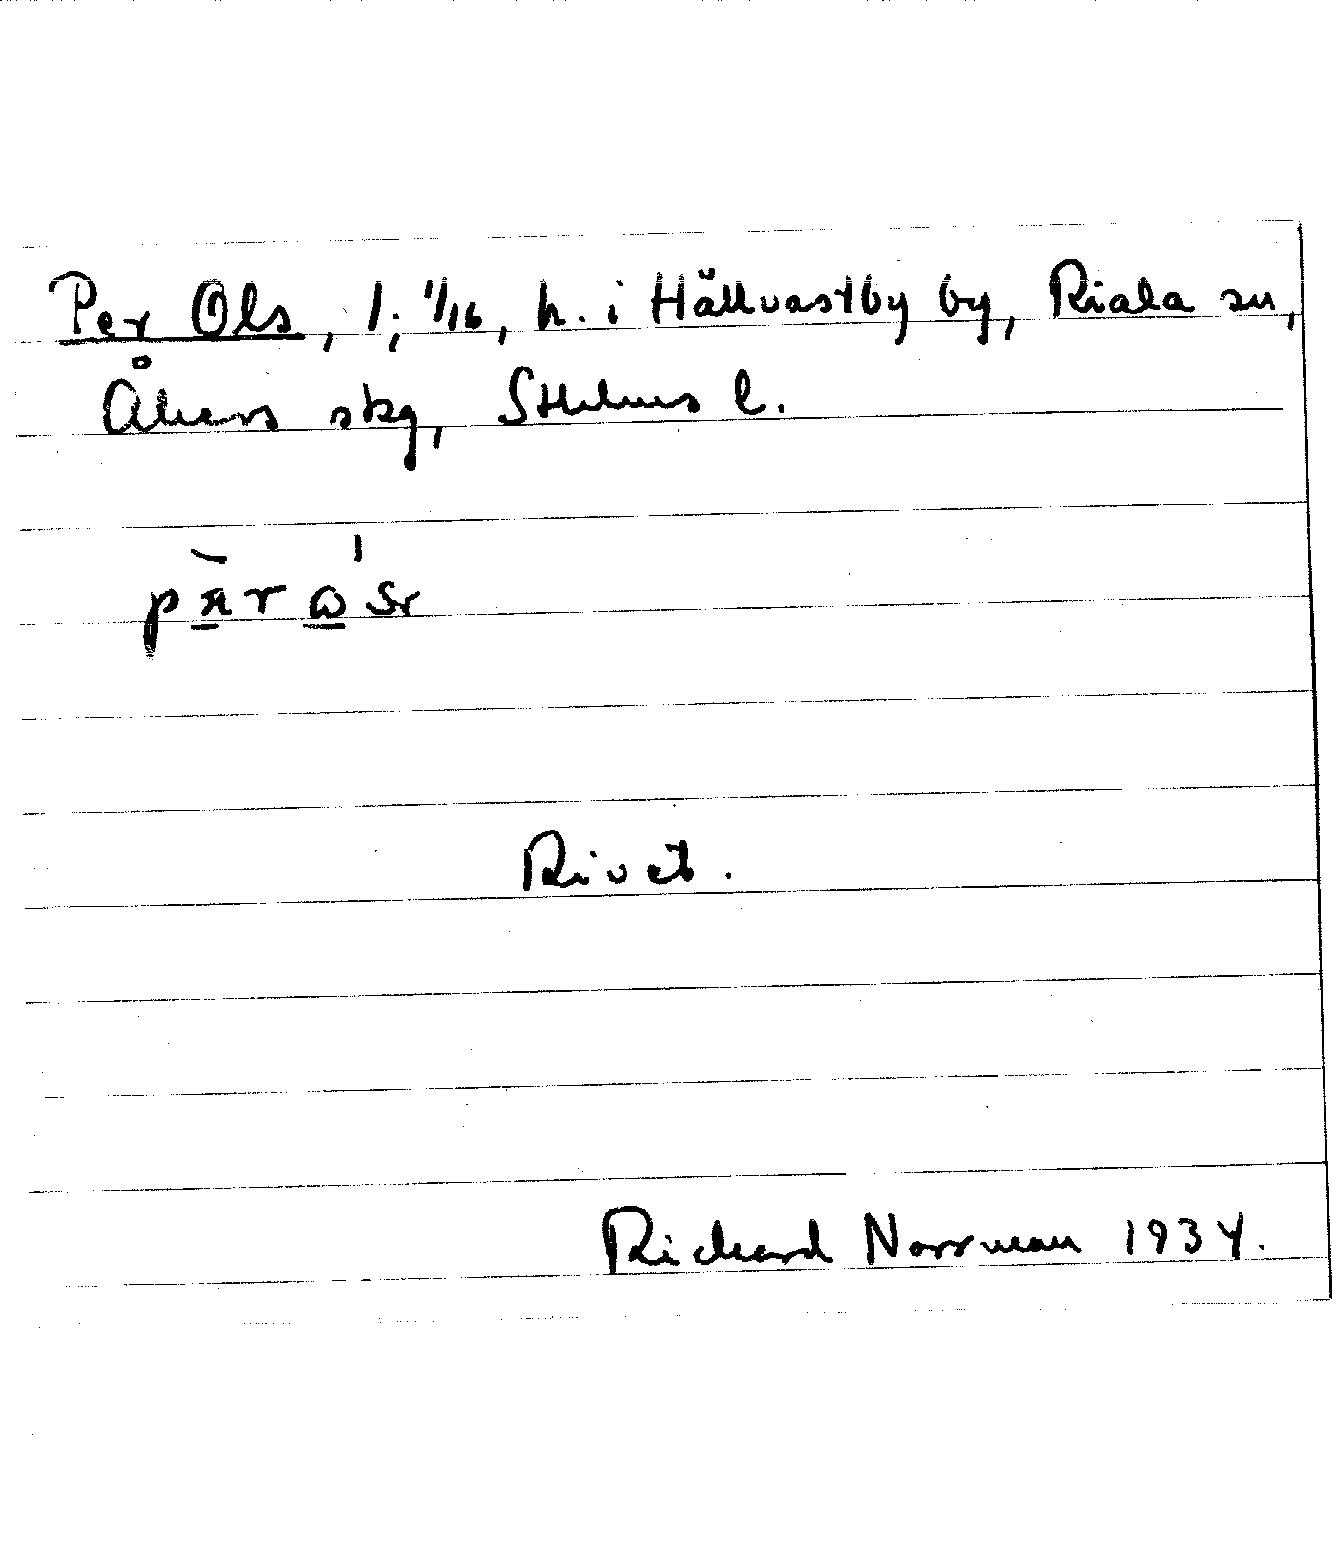 Per Ols, 1; 1/16, h. i Hällvastby by, Riala sn,
Åkers skg, Sthlms l.
Rivet.
Richard Norrman 1934.